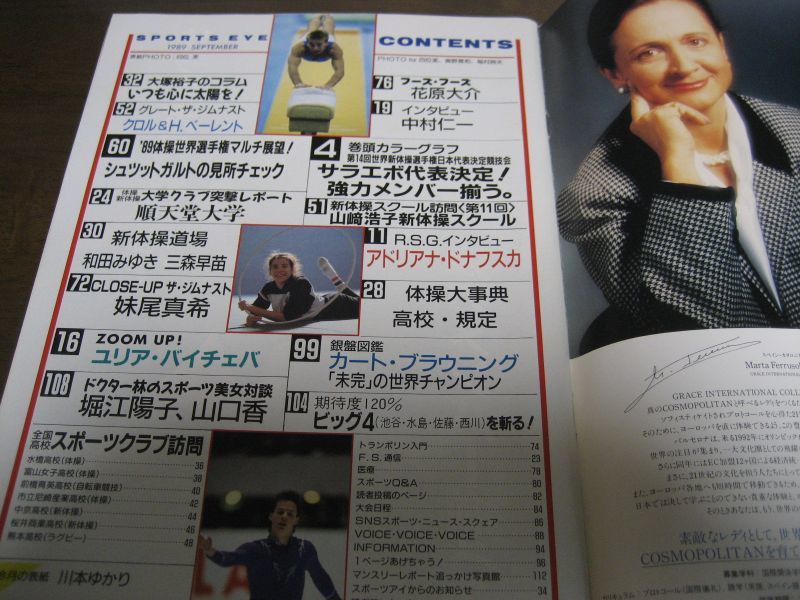 SPORTS EYE
1989 SEPTEMBER
CONTENTS
32 大塚裕子のコラム
いつも心に太陽を!
52 グレート・ザ・ジムナスト
クロル&H.ベーレント
60 '89体操世界選手権マルチ展望!
シュツットガルトの見所チェック
24 体操 新体操 大学クラブ突撃レポート
順天堂大学
30 新体操道場
和田みゆき 三森早苗
72 CLOSE-UP ザ・ジムナスト
妹尾真希
16 ZOOM UP!
ユリア・バイチェバ
108 ドクター林のスポーツ美女対談
堀江陽子、山口香
76 フーズ・フーズ
花原大介
19 インタビュー
中村仁一
4 巻頭カラーグラフ
第14回世界新体操選手権日本代表決定競技会
サラエボ代表決定!
強力メンバー揃う。
51 新体操スクール訪問〈第11回〉
山﨑浩子新体操スクール
11 R.S.G.インタビュー
アドリアナ・ドナフスカ
28 体操大事典
高校・規定
99 銀盤図鑑
カート・ブラウニング
「未完」の世界チャンピオン
104 期待度120%
ビッグ4(池谷・水島・佐藤・西川)を斬る!
全国高校 スポーツクラブ訪問
水橋高校(体操) 36
富山女子高校(体操) 38
前橋育英高校(自転車競技) 40
市立尼崎産業高校(体操) 42
中京高校(新体操) 44
桜井商業高校(新体操) 46
熊本高校(ラグビー) 48
今月の表紙 川本ゆかり
トランポリン入門 74
F.S.通信 23
医療 78
スポーツQ&A 80
読者投稿のページ 82
大会日程 84
SNSスポーツ・ニュース・スクェア 86
VOICE・VOICE・VOICE 88
INFORMATION 94
1ページあげちゃう! 98
マンスリーレポート追っかけ写真館 112
スポーツアイからのお知らせ 34
Marta Ferruso
GRACE INTERNATIONAL
GRACE INTERNATIONAL COLL
真のCOSMOPOLITANと呼べるレディをつくるた